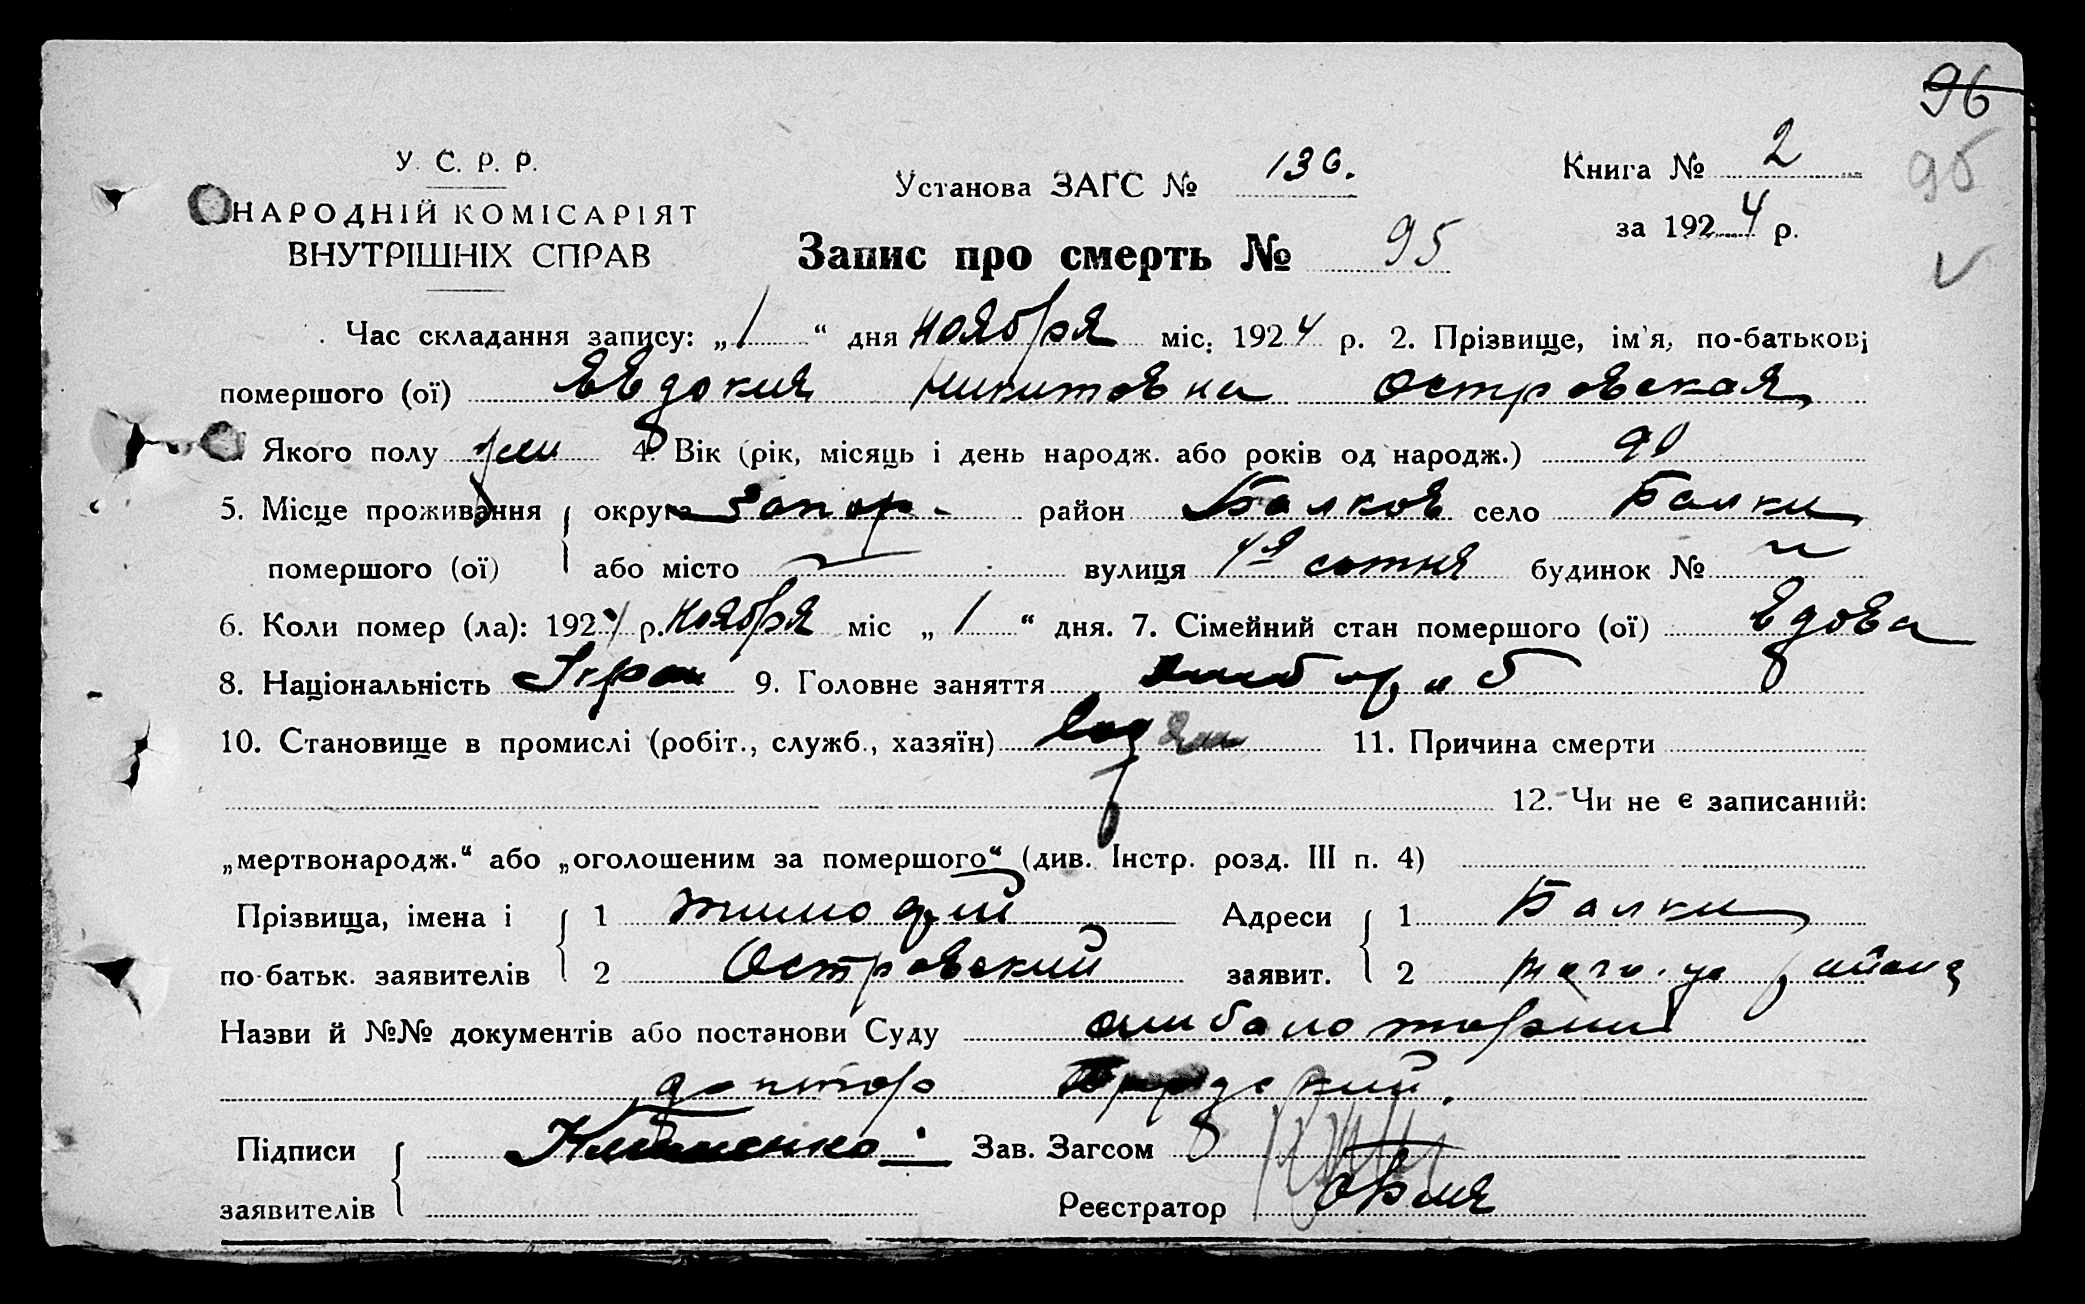 96
95
У. С. Р. Р.
НАРОДНІЙ КОМІСАРІЯТ
ВНУТРІШНІХ СПРАВ
Установа ЗАГС № 136.
Книга № 2
за 1924 р.
Запис про смерть № 95
Час складання запису: „1“ дня ноября міс. 1924 р. 2. Прізвище, ім'я, по-батькові
помершого (ої) Евдокия Никитовна Островская
Якого полу жен 4. Вік (рік, місяць і день народж. або років од народж.) 90
5. Місце проживання округа Запор. район Балков село Балки
помершого (ої) або місто вулиця 4я сотня будинок №
6. Коли помер (ла): 1924 р. ноября міс „1“ дня. 7. Сімейний стан помершого (ої) вдова
8. Національність Украи 9. Головне заняття
10. Становище в промислі (робіт., служб., хазяїн) 11. Причина смерти
12. Чи не є записаний:
„мертвонародж.“ або „оголошеним за помершого“ (див. Інстр. розд. III п. 4)
Прізвища, імена і 1 Тимофій Адреси 1 Балки
по-батьк. заявителів 2 Островский заявит. 2 того же района
Назви й №№ документів або постанови Суду амбалотории
доктор
Підписи Клименко Зав. Загсом
заявителів Реєстратор